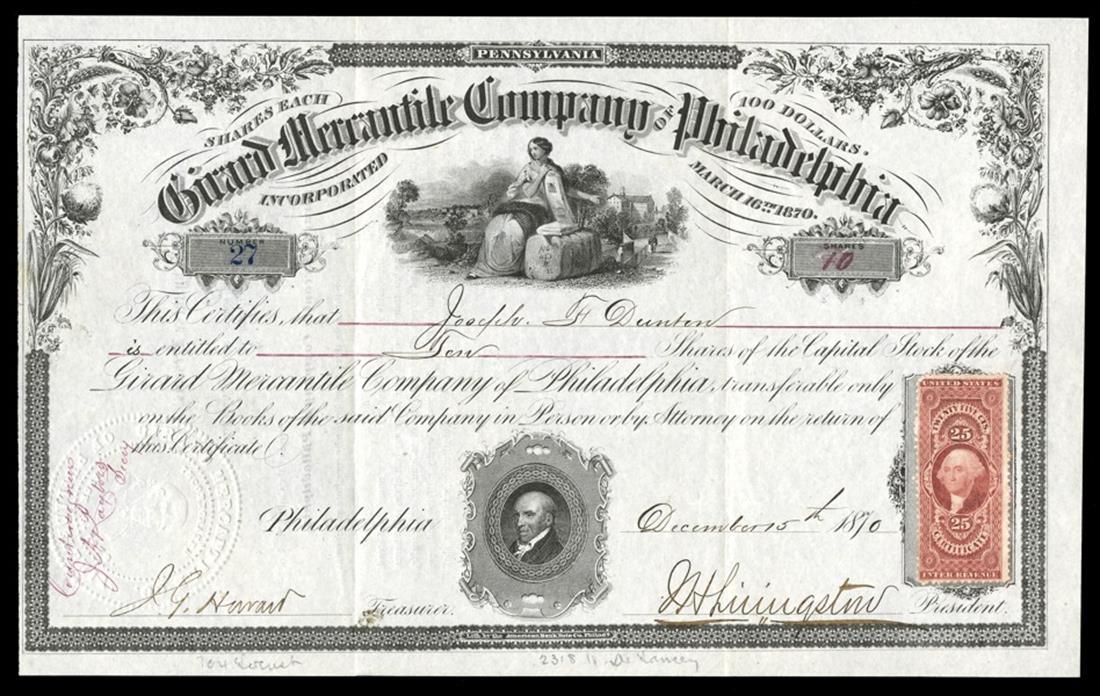 PENNSYLVANIA
SHARES EACH 100 DOLLARS.
Girard Mercantile Company OF Philadelphia
INCORPORATED MARCH 16TH 1870.
NUMBER
27
SHARES
10
This Certifies, that Joseph F Dunton
is entitled to Ten Shares of the Capital Stock of the
Girard Mercantile Company of Philadelphia, transferable only
on the Books of the said Company in Person or by Attorney on the return of
this Certificate.
UNITED STATES
TWENTY FIVE CTS.
25
25
CERTIFICATE
INTER REVENUE
Philadelphia December 15th 1870
J. G. Howard Treasurer. Livingston President.
Lith. by the American Bank Note Co. Philad.
704 Locust 2318 De Lancey